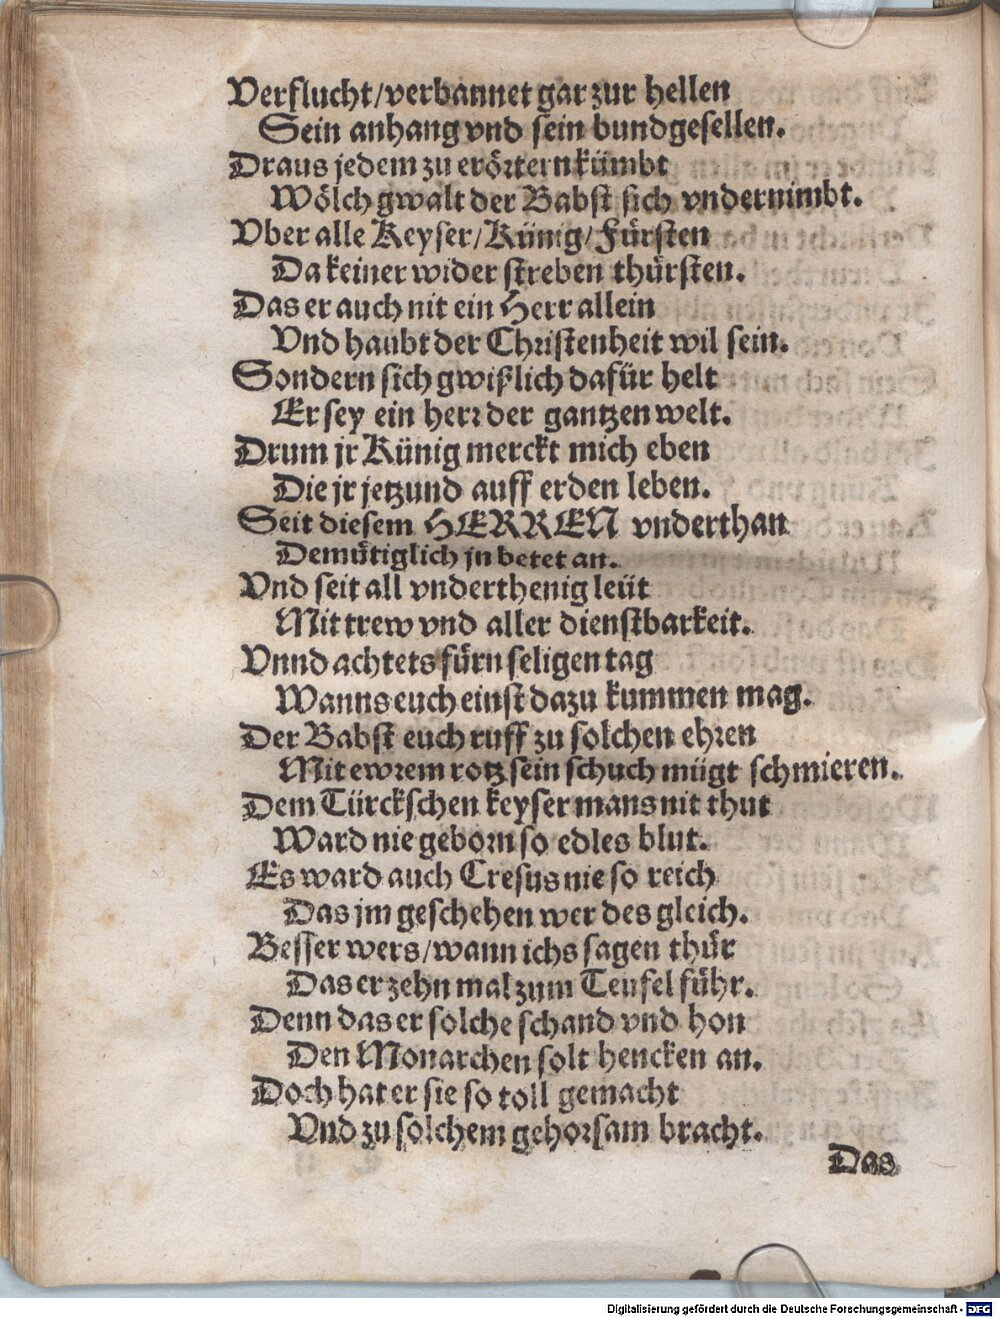 Verflucht/verbannet gar zur hellen
Sein anhang vnd sein bundgesellen.
Draus jedem zu erörtern kümbt
Wölch gwalt der Babst sich vndernimbt.
Vber alle Keyser/Künig/Fürsten
Da keiner wider streben thürsten.
Das er auch nit ein Herr allein
Vnd haubt der Christenheit wil sein.
Sondern sich gwißlich dafür helt
Er sey ein herr der gantzen welt.
Drum jr Künig merckt mich eben
Die jr jetzund auff erden leben.
Seit diesem HERREN vnderthan
Demütiglich jn betet an.
Vnd seit all vnderthenig leüt
Mit trew vnd aller dienstbarkeit.
Vnnd achtets fürn seligen tag
Wanns euch einst dazu kummen mag.
Der Babst euch ruff zu solchen ehren
Mit ewrem rotz sein schuch mügt schmieren.
Dem Türckschen keyser mans nit thut
Ward nie geborn so edles blut.
Es ward auch Cresus nie so reich
Das jm geschehen wer des gleich.
Besser wers/wann ichs sagen thür
Das er zehn mal zum Teufel führ.
Denn das er solche schand vnd hon
Den Monarchen solt hencken an.
Doch hat er sie so toll gemacht
Vnd zu solchem gehorsam bracht.
Das
Digitalisierung gefördert durch die Deutsche Forschungsgemeinschaft - DFG